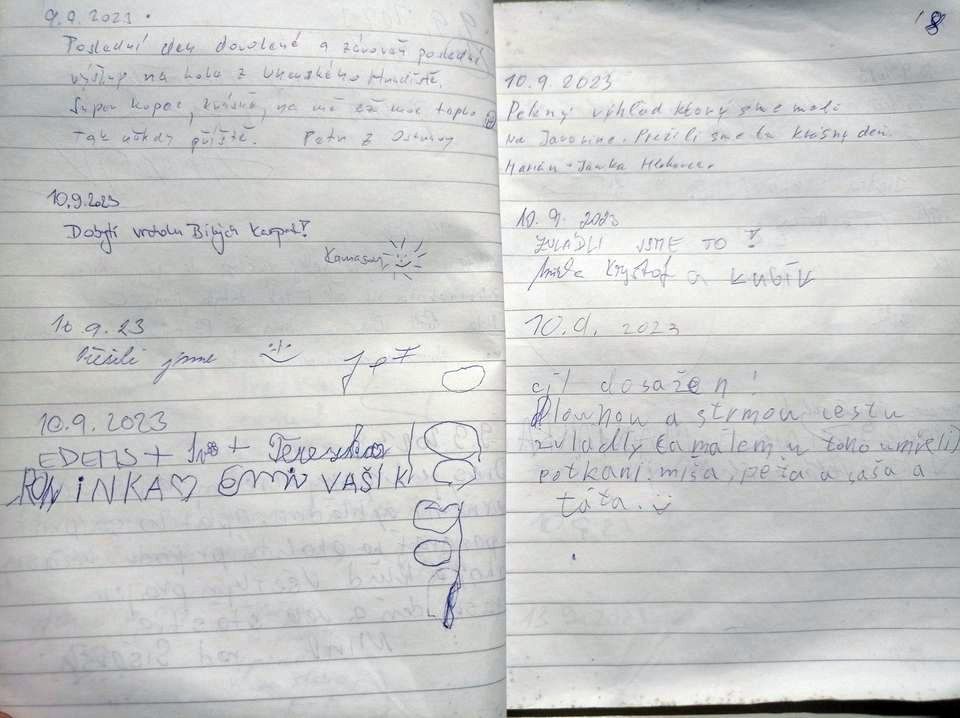 9.9.2023.
Poslední den dovolené a zároveň poslední
výšlap na kole z Uherského Hradiště.
Super kopec, krásně, na mě až moc teplo
Tak někdy příště. Petr z Ostravy
10.9.2023
Dobytí vrcholu Bílých Karpat!
10.9.23
Přežili jsme
10.9.2023
+ + Terezka
INKA ♡ EMIN VAŠÍK
8
10.9.2023
Pekný výhľad ktorý sme mali
na Javorine. Prežili sme tu krásny deň.
Marián + Janka
10.9.2023
ZVLÁDLI JSME TO!
Kryštof a KUBÍK
10.9. 2023
cíl dosažen!
Dlouhou a strmou cestu
zvládly (a málem u toho umřeli)
potkani míša, péťa a
táta. :)